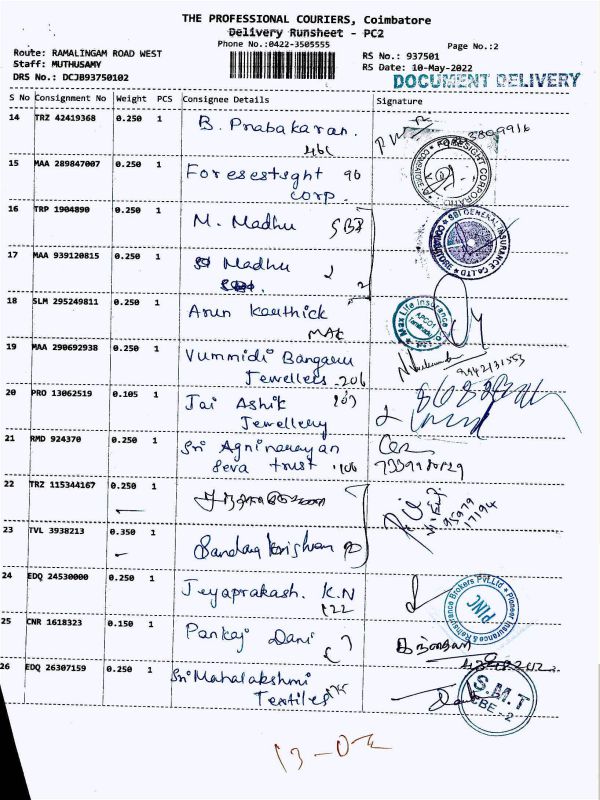 THE PROFESSIONAL COURIERS, Coimbatore
Delivery Runsheet - PC2
Phone No.:0422-3505555
Page No.:2
Route: RAMALINGAM ROAD WEST
Staff: MUTHUSAMY
DRS No.: DCJB93750102
RS No.: 937501
RS Date: 10-May-2022
DOCUMENT DELIVERY
S No Consignment No Weight PCS Consignee Details Signature
14 TRZ 42419368 0.250 1 B. Prabakaran.
15 MAA 289847007 0.250 1 Foresestsght 90
corp.
FORESIGHT CORPORATION
16 TRP 1904890 0.250 1 M. Madhu SBI
SBI GENERAL INSURANCE CO LTD
17 MAA 939120815 0.250 1 Madhu
18 SLM 295249811 0.250 1 Arun Kauthick
MAX
Max Life Insurance
19 MAA 290692938 0.250 1 Vummidi Bangaru
Jewellers 206
9942131553
20 PRO 13062519 0.105 1 Jai Ashik
Jewellery
21 RMD 924370 0.250 1 Sri Agninarayan
Seva trust .106
22 TRZ 115344167 0.250 1
23 TVL 3938213 0.350 1
24 EDQ 24530000 0.250 1 Jeyaprakash. K.N
122
Pioneer Insurance & Reinsurance Brokers Pvt.Ltd
PINC
25 CNR 1618323 0.150 1 Pankaj Dani
26 EDQ 26307159 0.250 1 Sri Mahalakshmi
Textiles
S.M.T
CBE - 2